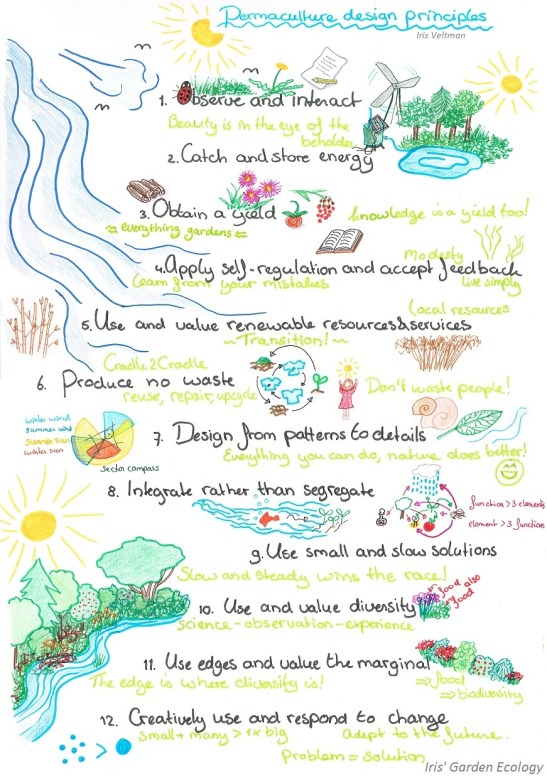 Permaculture design principles
Iris Veltman
1. Observe and interact
Beauty is in the eye of the
beholder
2. Catch and store energy
3. Obtain a yield
knowledge is a yield too!
≈ everything gardens ≈
Modesty
4. Apply self-regulation and accept feedback
learn from your mistakes
live simply
local resources
5. Use and value renewable resources & services
~Transition!~
Cradle2Cradle
6. Produce no waste
reuse, repair, upcycle
Don't waste people!
winter wind
summer wind
summer sun
winter sun
sector compass
7. Design from patterns to details
Everything you can do, nature does better!
8. Integrate rather than segregate
function > 3 elements
element > 3 functions
9. Use small and slow solutions
Slow and steady wins the race!
10. Use and value diversity
food also
good
science - observation - experience
11. Use edges and value the marginal
The edge is where diversity is!
⇒ food
⇒ biodiversity
12. Creatively use and respond to change
small + many > 1x big
Adept to the future.
Problem = solution
Iris' Garden Ecology